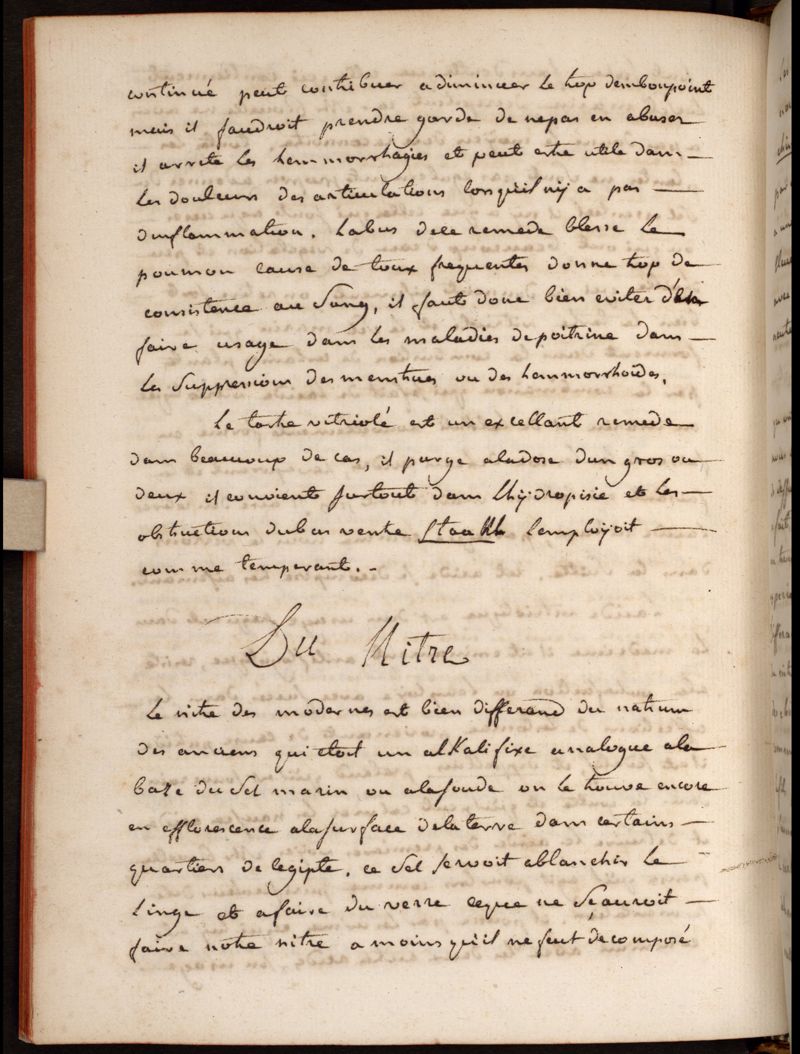 continué peut contribuer a diminuer le trop dembonpoint
mais il faudroit prendre garde de nepas en abuser
il arrete les hemmorrhagies et peut estre utile dans
les douleurs des articulations lorsquil ny a pas
dinflammation. Labus dece remede blesse le
poumon cause de toux frequentes donne trop de
consistence au Sang, il faut donc bien eviter d'en
faire usage dans les maladies depoitrine dans
les Suppressions des menstrues ou des hemmorrhoïdes.
Le tartre vitriolé est un excellant remede
dans beaucoup de cas, il purge aladose dun gros ou
deux il convient surtout dans Lhydropisie et les
obstructions dubas ventre Staakh lemployoit
comme temperant.
Du Nitre
Le nitre des modernes est bien differend du natrum
des anciens qui etoit un alkali fixe analogue ala
baze du Sel marin ou alasoude on le trouve encore
en efflorescence alasurface delaterre dans certains
quartiers de legipte. ce Sel servoit ablanchir le
Linge et afaire du verre ceque ne Sçauroit
faire notre nitre a moins quil ne fut decomposé